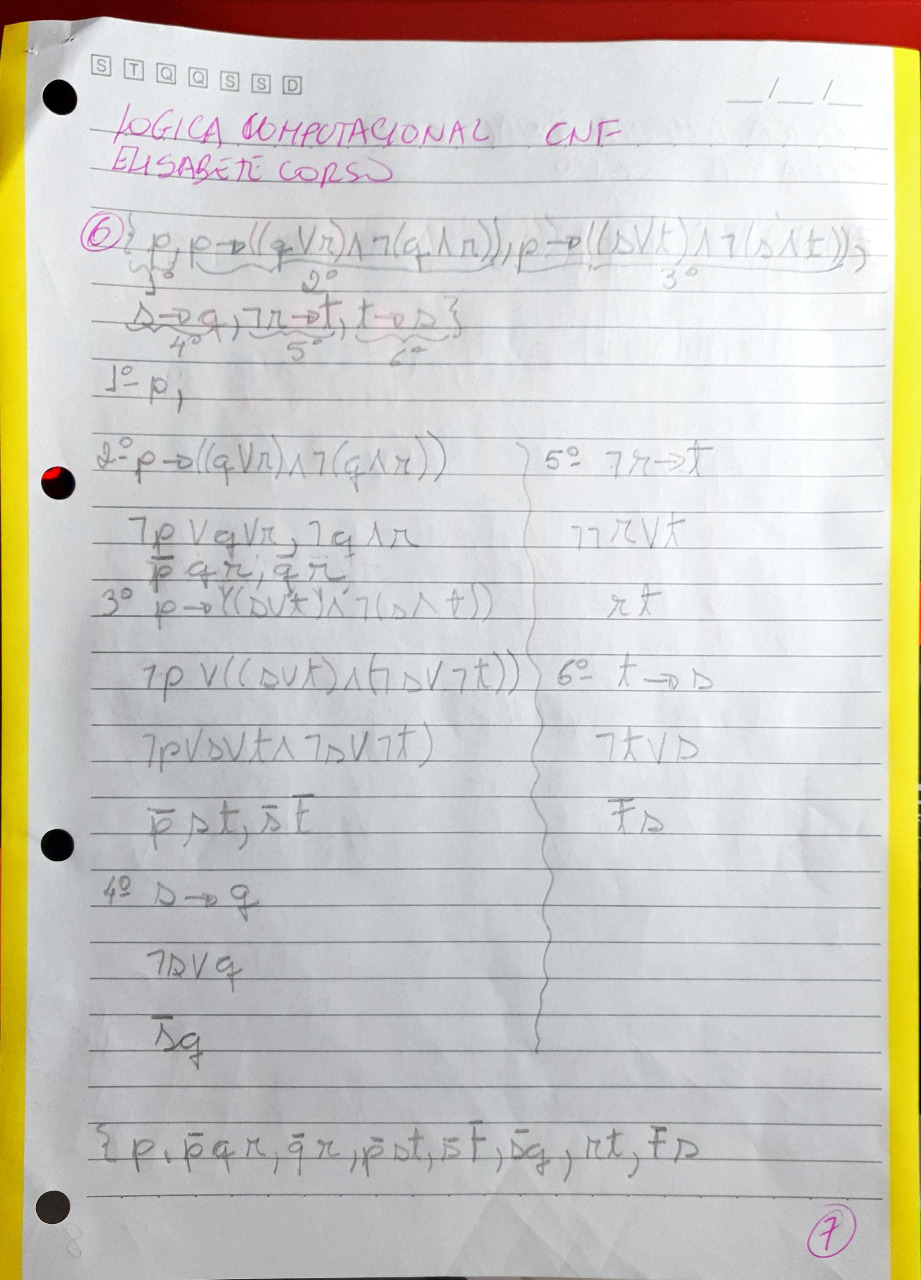 S T Q Q S S D
__/__/__
LOGICA COMPUTACIONAL CNF
ELISABETE CORSO
6 { p, p→((q∨r)∧¬(q∧r)), p→((s∨t)∧¬(s∧t)),
1º 2º 3º
s→q, ¬r→t, t→s}
4º 5º 6º
1º p,
2º p→((q∨r)∧¬(q∧r))
¬p∨q∨r, ¬q∧r
p̄ q r, q̄ r
3º p→((s∨t)∧¬(s∧t))
¬p∨((s∨t)∧(¬s∨¬t))
¬p∨s∨t∧¬s∨¬t)
p̄ s t, s̄ t̄
4º s→q
¬s∨q
s̄q
5º ¬r→t
¬¬r∨t
r t
6º t→s
¬t∨s
t̄s
{ p, p̄ q r, q̄ r, p̄ s t, s̄ t̄, s̄q, rt, t̄s
7